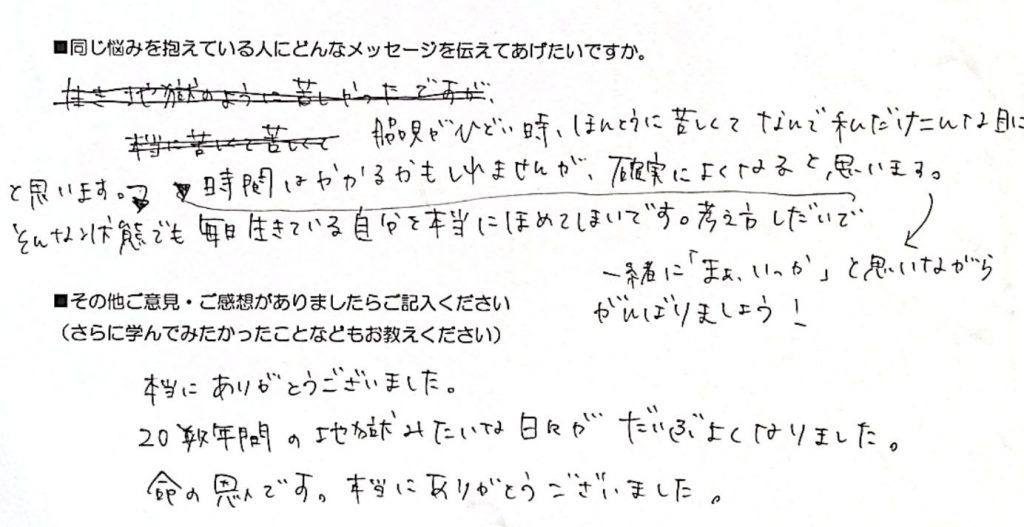 ■同じ悩みを抱えている人にどんなメッセージを伝えてあげたいですか。
生き地獄のように苦しかったですが、
本当に苦しくて苦しくて
脇見がひどい時、ほんとうに苦しくてなんで私だけこんな目に
と思います。時間はかかるかもしれませんが、確実によくなると思います。
そんな状態でも毎日生きている自分を本当にほめてほしいです。考え方しだいで
一緒に「まぁ、いっか」と思いながら
がんばりましょう!
■その他ご意見・ご感想がありましたらご記入ください
(さらに学んでみたかったことなどもお教えください)
本当にありがとうございました。
20数年間の地獄みたいな日々がだいぶよくなりました。
命の恩人です。本当にありがとうございました。